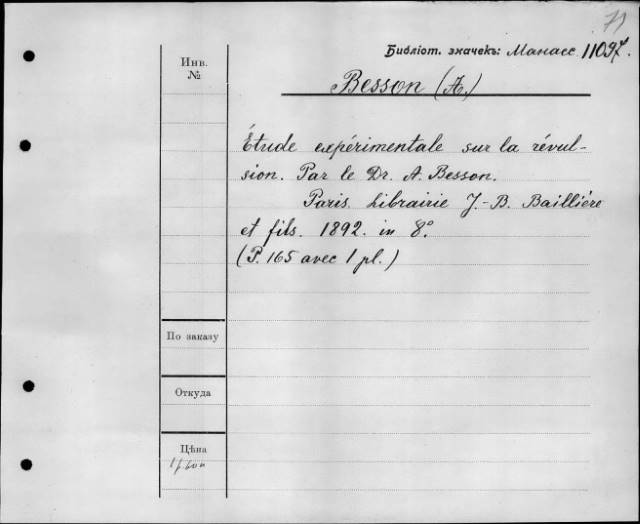 71
Библіот. значекъ: Манасс. 11097.
Инв.
№
Besson (A.)
Étude expérimentale sur la révul-
sion. Par le Dr. A. Besson.
Paris. Librairie J.-B. Baillière
et fils. 1892. in 8°.
(P. 165 avec 1 pl.)
По заказу
Откуда
Цѣна